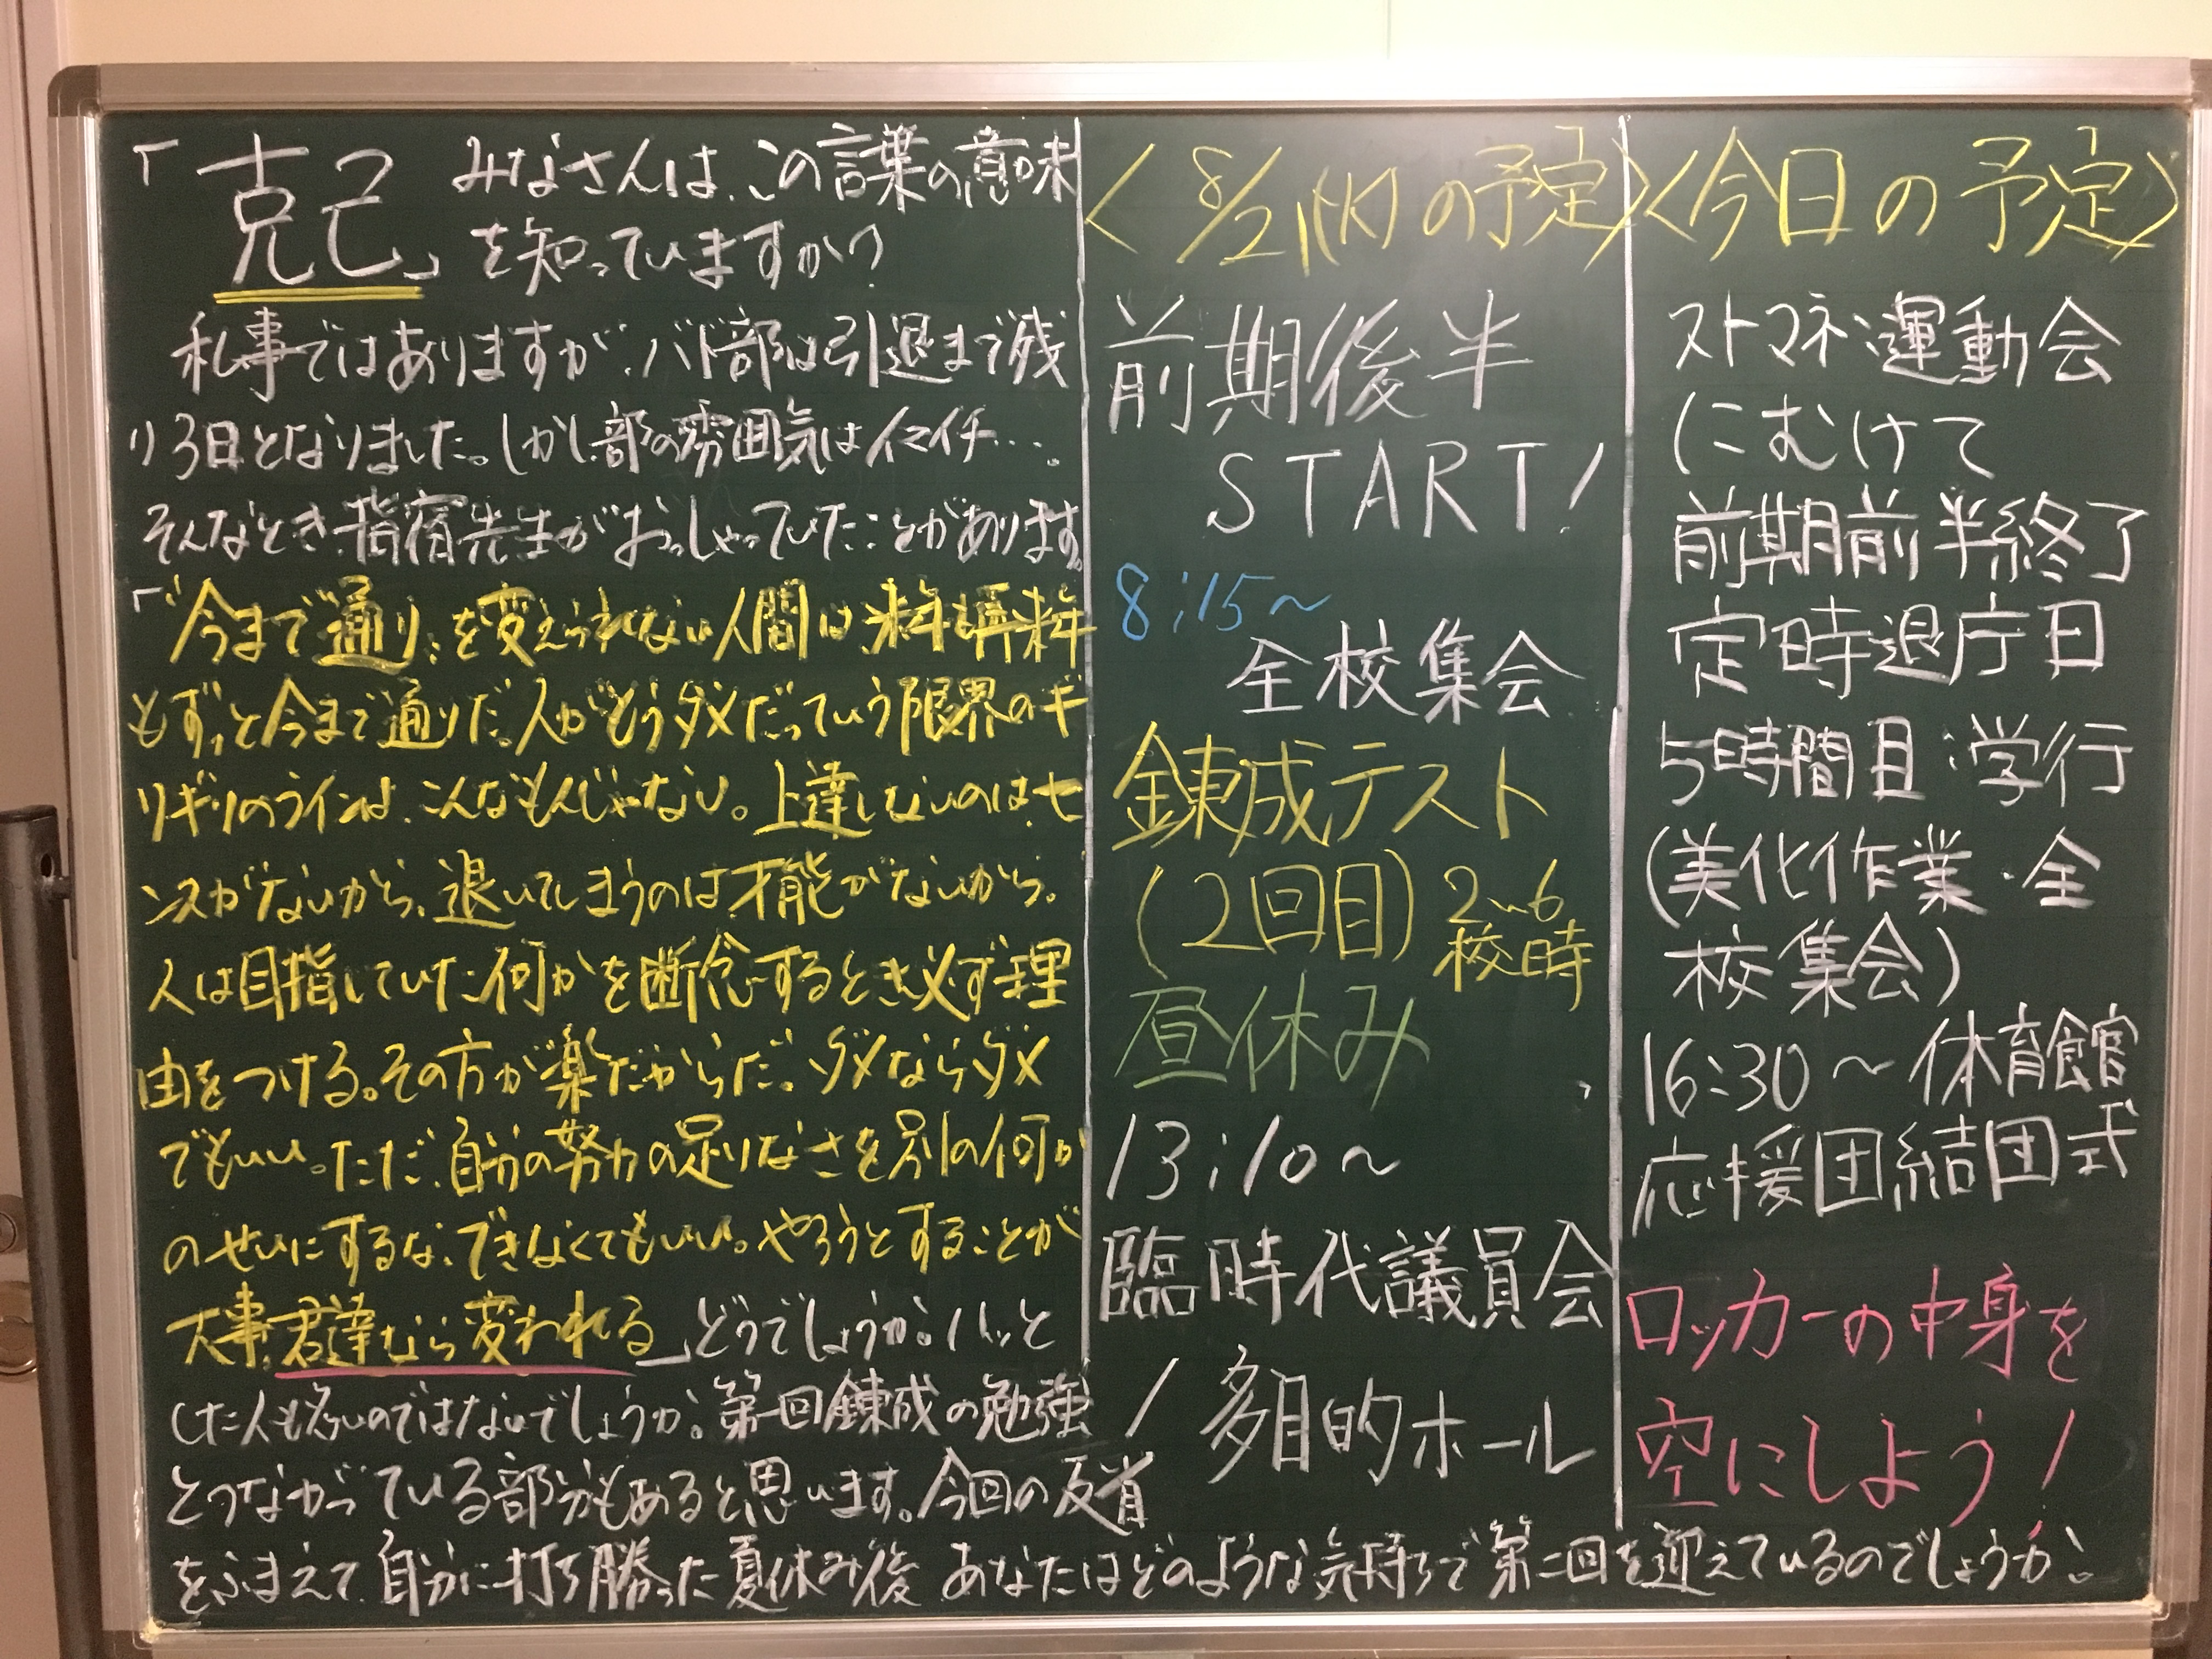 「克己」みなさんは、この言葉の意味
を知っていますか?
私事ではありますが、バド部は引退まで残
り3日となりました。しかし部の雰囲気はイマイチ…。
そんなとき、指宿先生がおっしゃっていたことがあります。
「"今まで通り"を変えられない人間は来年再来年
もずっと今まで通りだ。人がもうダメだっていう限界のギ
リギリのラインは、こんなもんじゃない。上達しないのは、セ
ンスがないから、退いてしまうのは才能がないから。
人は目指していた何かを断念するとき必ず理
由をつける。その方が楽だからだ。ダメならダメ
でもいい。ただ、自分の努力の足りなさを別の何か
のせいにするな。できなくてもいい。やろうとすることが
大事。君達なら変われる」どうでしょうか。ハッと
した人も多いのではないでしょうか。第一回錬成の勉強
とつながっている部分もあると思います。今回の反省
をふまえて、自分に打ち勝った夏休み後、あなたはどのような気持ちで第二回を迎えているのでしょうか。
<8/21(火)の予定>
前期後半
START!
8:15~
全校集会
錬成テスト
(2回目) 2~6
校時
昼休み
13:10~
臨時代議員会
/多目的ホール
<今日の予定>
ストマネ:運動会
にむけて
前期前半終了
定時退庁日
5時間目:学行
(美化作業・全
校集会)
16:30~体育館
応援団結団式
ロッカーの中身を
空にしよう!